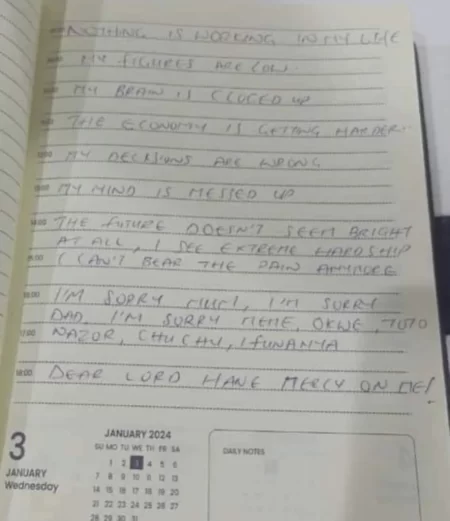 NOTHING IS WORKING IN MY LIFE
MY FIGURES ARE LOW
MY BRAIN IS CLOGED UP
THE ECONOMY IS GETTING HARDER
MY DECISIONS ARE WRONG
MY MIND IS MESSED UP
14:00 THE FUTURE DOESN'T SEEM BRIGHT
AT ALL, I SEE EXTREME HARDSHIP
15:00 I CAN'T BEAR THE PAIN ANYMORE
16:00 I'M SORRY I'M SORRY
DAD, I'M SORRY MEME, OKWE, TOTO
17:00 NAZOR, CHUCHU, IFUNANYA
18:00 DEAR LORD HAVE MERCY ON ME!
3
JANUARY
Wednesday
JANUARY 2024
SU MO TU WE TH FR SA
1 2 3 4 5 6
7 8 9 10 11 12 13
14 15 16 17 18 19 20
21 22 23 24 25 26 27
28 29 30 31
DAILY NOTES